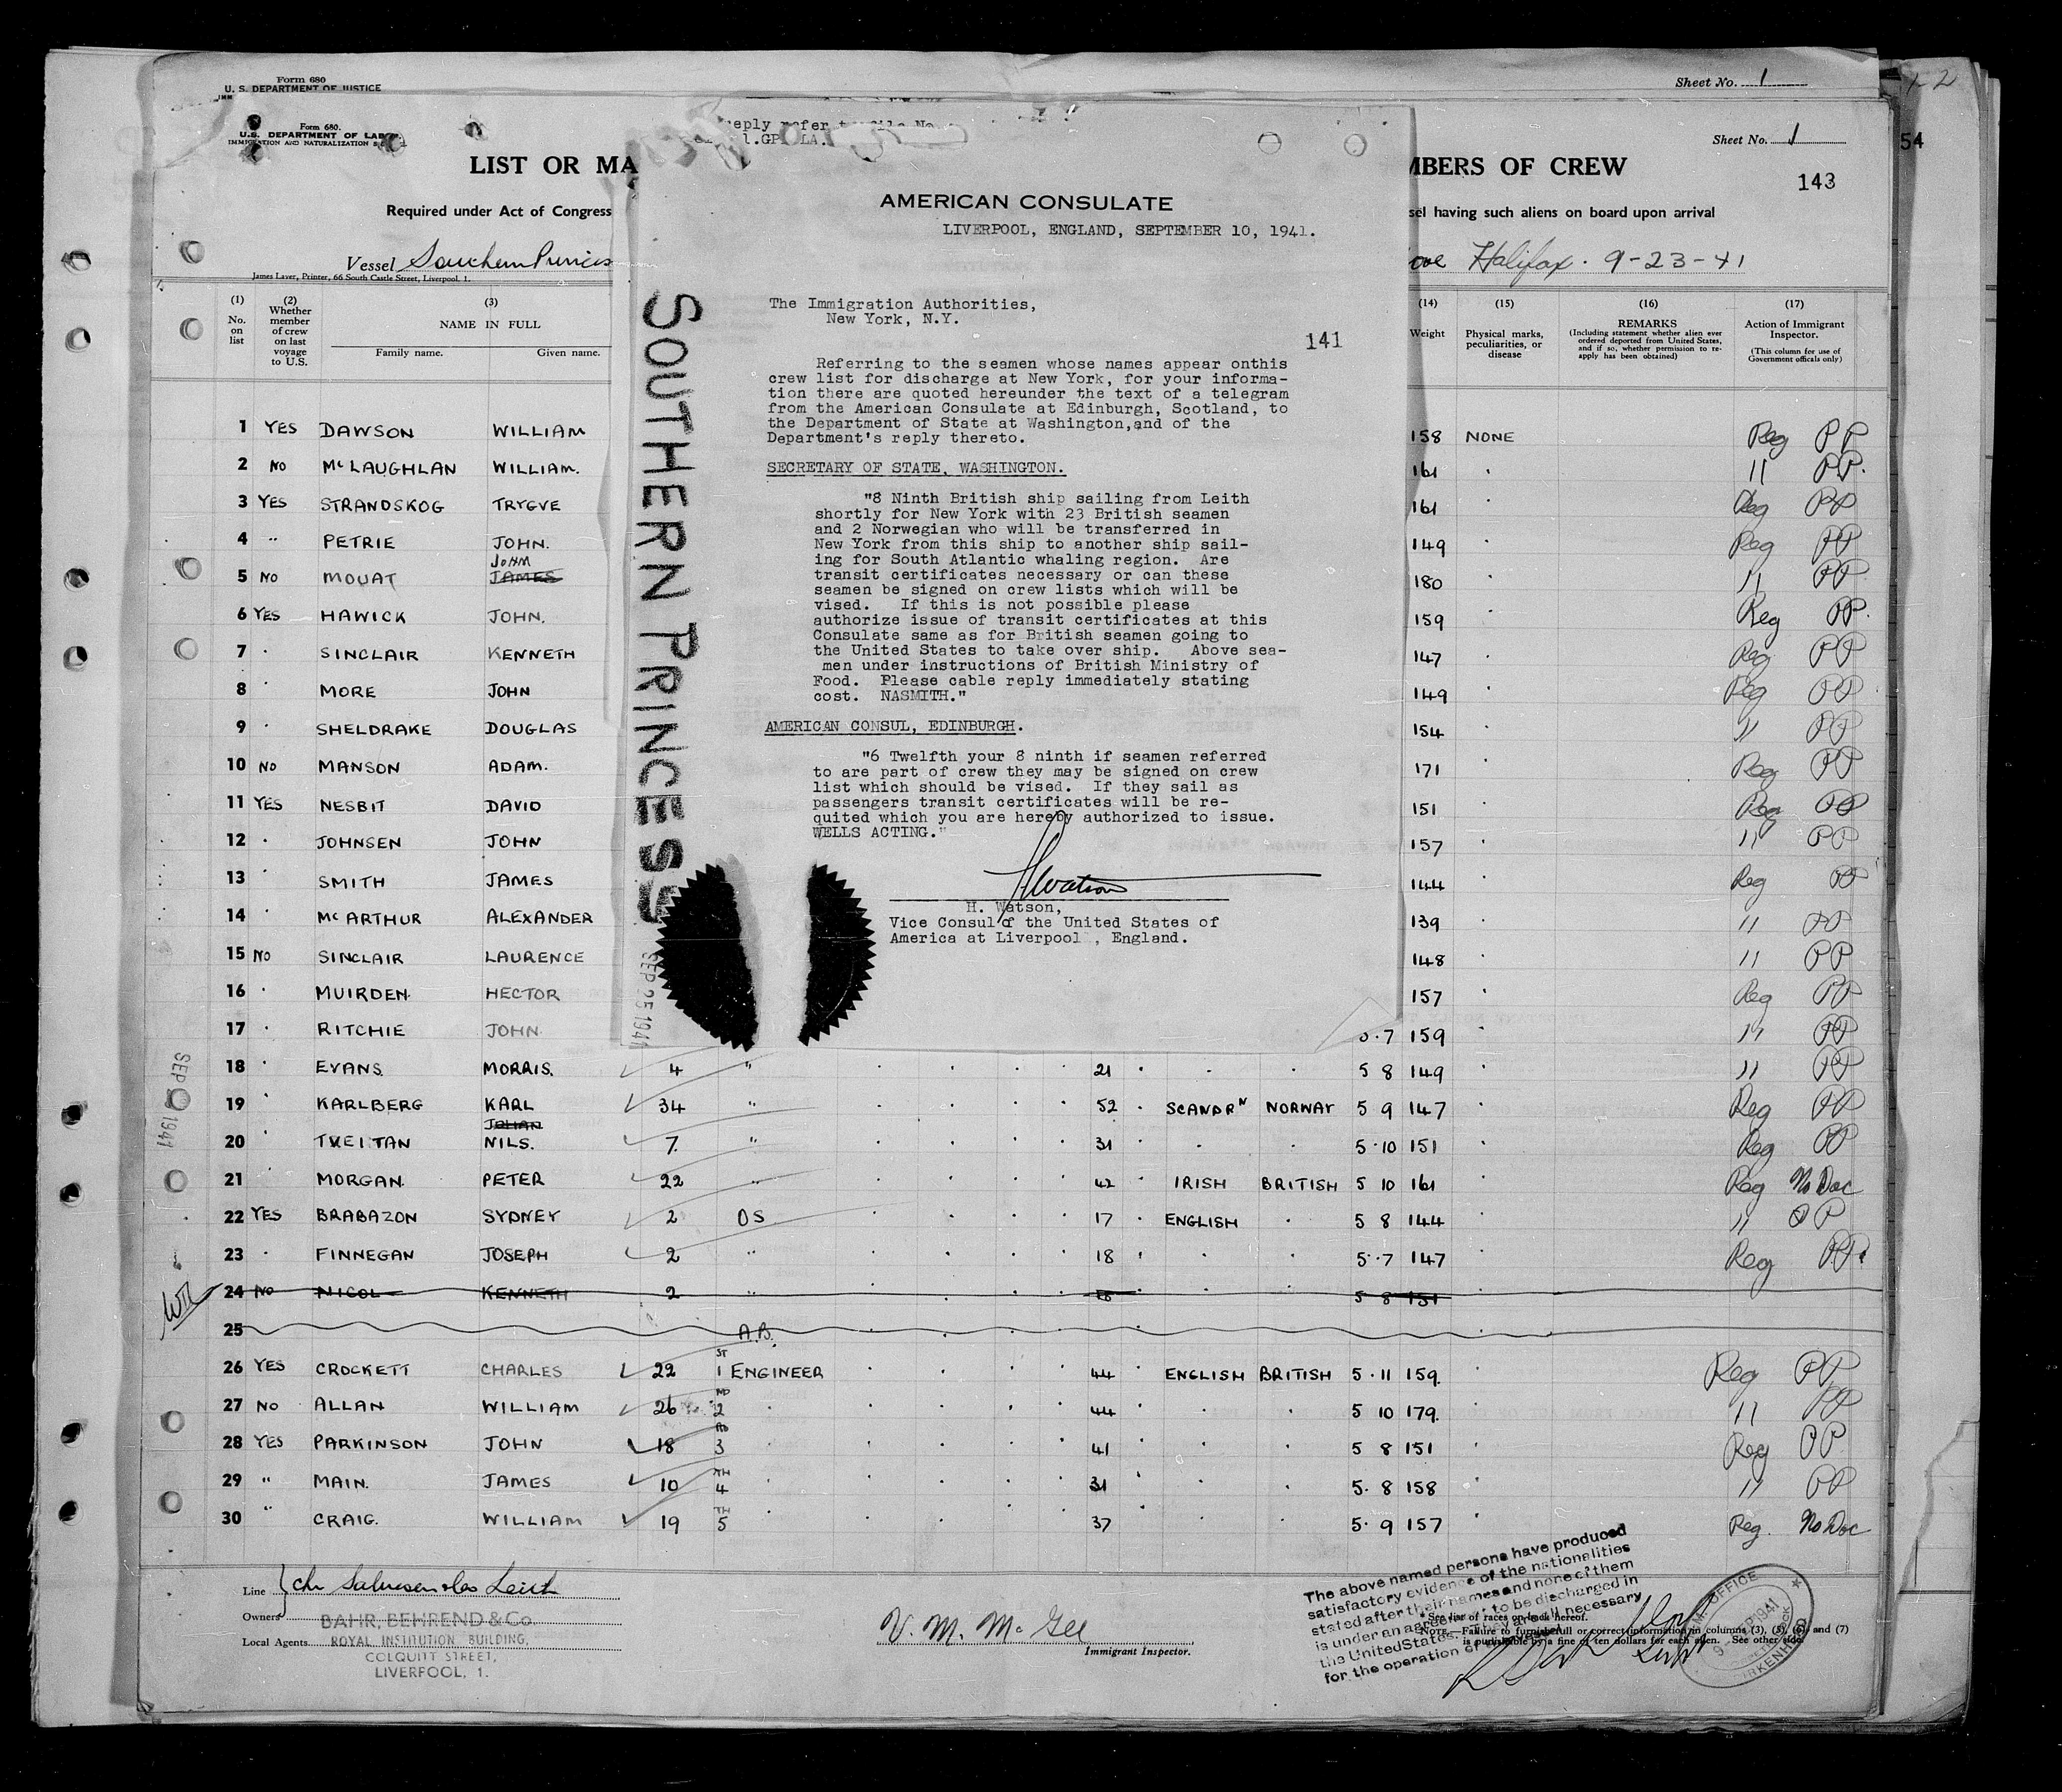 Form 680
U. S. DEPARTMENT OF JUSTICE
Sheet No. 1
Form 680.
U.S. DEPARTMENT OF LAB
IMMIGRATION AND NATURALIZATION S
Sheet No. 1
54
143
LIST OR MA
MBERS OF CREW
Required under Act of Congress
sel having such aliens on board upon arrival
Vessel Southern Princess
James Laver, Printer, 66 South Castle Street, Liverpool, 1.
Halifax. 9-23-41
eply refer to file No.
AMERICAN CONSULATE
LIVERPOOL, ENGLAND, SEPTEMBER 10, 1941.
The Immigration Authorities,
New York, N.Y.
141
Referring to the seamen whose names appear onthis
crew list for discharge at New York, for your informa-
tion there are quoted hereunder the text of a telegram
from the American Consulate at Edinburgh, Scotland, to
the Department of State at Washington,and of the
Department's reply thereto.
SECRETARY OF STATE, WASHINGTON.
"8 Ninth British ship sailing from Leith
shortly for New York with 23 British seamen
and 2 Norwegian who will be transferred in
New York from this ship to another ship sail-
ing for South Atlantic whaling region. Are
transit certificates necessary or can these
seamen be signed on crew lists which will be
vised. If this is not possible please
authorize issue of transit certificates at this
Consulate same as for British seamen going to
the United States to take over ship. Above sea-
men under instructions of British Ministry of
Food. Please cable reply immediately stating
cost. NASMITH."
AMERICAN CONSUL, EDINBURGH.
"6 Twelfth your 8 ninth if seamen referred
to are part of crew they may be signed on crew
list which should be vised. If they sail as
passengers transit certificates will be re-
quited which you are hereby authorized to issue.
WELLS ACTING."
HWatson
H. Watson,
Vice Consul of the United States of
America at Liverpool , England.
SOUTHERN PRINCESS
SEP 25 1941
SEP 1941
(1) No. on list
(2) Whether member of crew on last voyage to U.S.
(3) NAME IN FULL
Family name. Given name.
(14) Weight
(15) Physical marks, peculiarities, or disease
(16) REMARKS
(Including statement whether alien ever ordered deported from United States, and if so, whether permission to re-apply has been obtained)
(17) Action of Immigrant Inspector.
(This column for use of Government officials only)
1 YES DAWSON WILLIAM 158 NONE Reg PP
2 NO McLAUGHLAN WILLIAM. 161 " 11 PP.
3 YES STRANDSKOG TRYGVE 161 " Reg PP
4 " PETRIE JOHN. 149 " Reg PP
5 NO MOUAT JAMES JOHN 180 " 11 PP
6 YES HAWICK JOHN. 159 " Reg PP.
7 " SINCLAIR KENNETH 147 " Reg PP
8 " MORE JOHN 149 " Reg PP
9 " SHELDRAKE DOUGLAS 154 " 11 PP
10 NO MANSON ADAM. 171 " Reg PP
11 YES NESBIT DAVID 151 " Reg PP
12 " JOHNSEN JOHN 157 " 11 PP
13 " SMITH JAMES 144 " Reg PP
14 " McARTHUR ALEXANDER 139 " 11 PP
15 NO SINCLAIR LAURENCE 148 " 11 PP
16 " MUIRDEN HECTOR 157 " Reg PP
17 " RITCHIE JOHN 5.7 159 " 11 PP
18 " EVANS MORRIS. 4 " 21 " " " 5 8 149 " 11 PP
19 " KARLBERG KARL 34 " 52 " SCANDRN NORWAY 5 9 147 " Reg PP
20 " TVEITAN JOHAN NILS. 7. " 31 " " 5.10 151 " Reg PP
21 MORGAN. PETER 22 " 42 " IRISH BRITISH 5 10 161 " Reg No Doc
22 YES BRABAZON SYDNEY 2 OS 17 " ENGLISH " 5 8 144 " 11 PP
23 " FINNEGAN JOSEPH 2 " 18 " " " 5.7 147 " Reg PP.
24 NO NICOL KENNETH 2 " 5 8 151
25 A.B.
26 YES CROCKETT CHARLES 22 1ST ENGINEER 44 ENGLISH BRITISH 5.11 159. Reg PP
27 NO ALLAN WILLIAM 26 2ND " 44 " " " 5 10 179. " 11 PP
28 YES PARKINSON JOHN 18 3RD " 41 " " " 5 8 151 " Reg PP
29 " MAIN. JAMES 10 4TH " 31 " " 5. 8 158 " 11 PP
30 " CRAIG. WILLIAM 19 5TH " 37 " " 5. 9 157 " Reg. No Doc
Line Chr Salvesen & Co Leith
Owners
Local Agents
BAHR, BEHREND & Co.
ROYAL INSTITUTION BUILDING,
COLQUITT STREET,
LIVERPOOL, 1.
V. M. McGee
Immigrant Inspector.
The above named persons have produced
satisfactory evidence of the nationalities
stated after their names and none of them
is under an agreement to be discharged in
the United States. They are all necessary
for the operation of
* See list of races on back hereof.
NOTE.—Failure to furnish full or correct information in columns (3), (5), (6), and (7)
is punishable by a fine of ten dollars for each alien. See other side.
IMM. OFFICE
9-SEP 1941
BIRKENHEAD